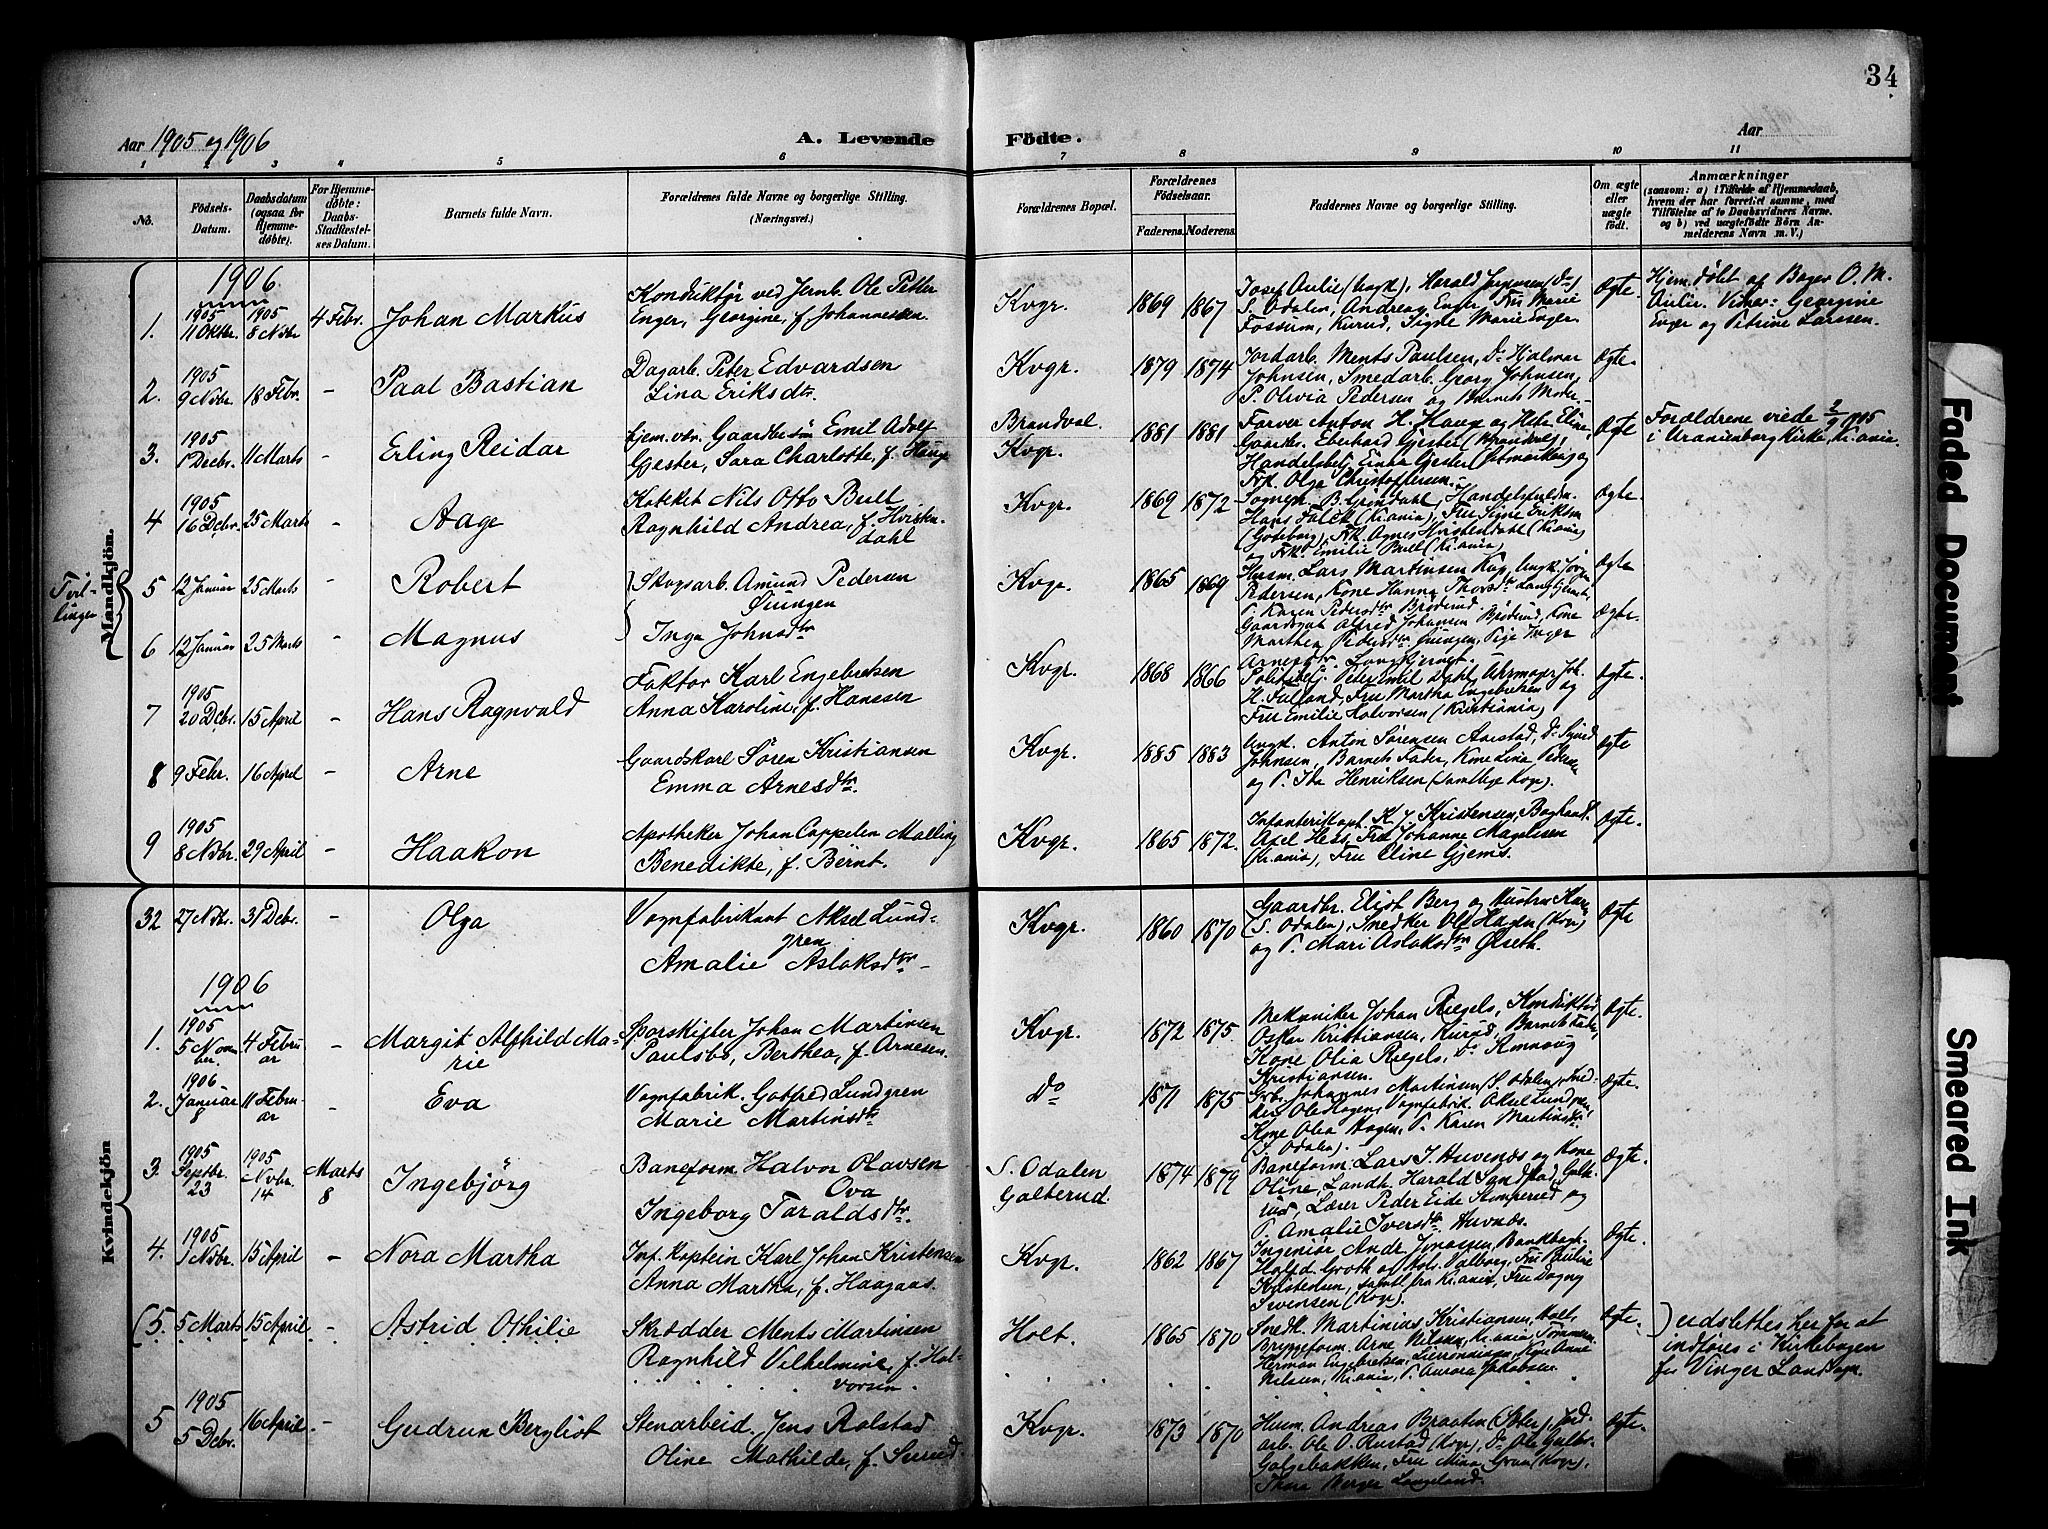 34
Aar 1905 og 1906
A. Levende
Födte.
Aar
1 2 3 4 5 6 7 8 9 10 11
No.
Födsels-
Datum.
Daabsdatum
(ogsaa for
Hjemme-
döbte).
For Hjemme-
döbte:
Daabs-
Stadfæstel-
ses Datum.
Barnets fulde Navn.
Forældrenes fulde Navne og borgerlige Stilling.
(Næringsvei.)
Forældrenes Bopæl.
Forældrenes
Födselsaar.
Faderens. Moderens.
Faddernes Navne og borgerlige Stilling.
Om ægte
eller
uægte
födt.
Anmærkninger
(saasom: a) i Tilfælde af Hjemmedaab,
hvem der har forrettet samme, med
Tilföielse af to Daabsvidners Navne.
og b) ved uægtefödte Börn An-
melderens Navn m. V.)
Mandkjön.
1906
1. 1905 11 Oktbr. 1905 8 Novbr 4 Febr. Johan Markus
Konduktør ved Jernb. Ole Peter
Enger, Georgine, f. Johannessen.
Kvgr. 1869 1867
Josef Aulie (ungk), Herald Jørgensen (do)
S. Odalen, Andreas Enger, Fru Marie
Fossum, Kurud, Signe Marie Enger.
Ægte
Hjemdøbt af Bager O. M.
Aulie. Vidner: Georgine
Enger og Petrine Larssen.
2. 1905 9 Novbr. 18 Febr. - Paal Bastian
Dagarb. Peter Edvardsen
Lina Eriksdtr.
Kvgr. 1879 1874
Jordarb. Ments Paulsen, Do Hjalmar
Johnsen, Smedarb. Georg Johnsen,
P. Olivia Pedersen og Barnets Moder.
Ægte
3. 1905 1 Decbr. 11 Marts - Erling Reidar
Hjem.vær. Gaardbr.søn Emil Adolf
Gjester, Sara Charlotte, f. Hauge
Brandval.
Kvgr. 1881 1881
Farver Anton H. Hauge og Hstr. Eline,
Gaardbr. Eberhard Gjester (Brandval),
Handelsbetj. Einar Gjester
Frk. Olga Christoffersen.
Ægte
Forældrene viede 2/9 1905
i Uranienborg Kirke, Kr.ania.
4 1905 16 Debr. 25 Marts - Aage
Kateket Nils Otto Bull
Ragnhild Andrea, f. Hvisten-
dahl
Kvgr. 1869 1872
Sognepr. B. Grøndahl, Handelsfuldm.
Hans Falck (Kr.ania), Fru Signe Eriksen
(Gøteborg), Frk. Agnes Hvistendahl (Kr.ania)
og Frk. Emilie Bull (Kr.ania)
Ægte
Tvil-
linger
5 12 Januar 25 Marts - Robert
Skogsarb. Amund Pedersen
Øiungen
Kvgr. 1865 1869
Husm. Lars Martinsen Kvgr., Ungk. Jørgen
Pedersen, Kone Hanna
P. Karen Pedersdtr
Ægte
6 12 Januar 25 Marts - Magnus
Inga Johnsdtr
Gaardsgut Alfred Johansen Brødlund, Kone
Marthea Pedersdtr Øiungen, Pige Inger
Arnesdtr.
Ægte.
7 1905 20 Debr. 15 April - Hans Ragnvald
Faktor Karl Engebretsen
Anna Karoline, f. Hanssen
Kvgr. 1868 1866
Politibetj. Peter Emil Dahl, Uhrmager Joh.
H. Fulland, Fru Martha Engebretsen og
Fru Emilie Halvorsen (Kristiania)
Ægte.
8 9 Febr. 16 April - Arne
Gaardskarl Søren Kristiansen
Emma Arnesdtr.
Kvgr. 1885 1883
Ungk. Anton Sørensen Aarstad, Do Sigurd
Johnsen, Barnets Fader, Kone Lina Pedersen
og P. Ida Henriksen (samtlige Kvgr).
Ægte
9 1905 8 Novbr. 29 April - Haakon
Apotheker Johan Cappelen Malling
Benedikte, f. Bernt.
Kvgr. 1865 1872.
Infanterikapt. K. J. Kristensen, Boghandl.
Axel Hess, Fru Johanne Magelssen
(Kr.ania), Fru Eline Gjems.
Ægte.
Kvindekjön
32 27 Novbr. 31 Debr. - Olga
Vognfabrikant Aksel Lund-
gren
Amalie Aslaksdtr
Kvgr. 1860 1870
Gaardbr. Elist Berg og Hustru
(S. Odalen), Snedker Ole Hagen (Kvgr)
og P. Mari Aslaksdtr Ølseth.
Ægte
1906
1. 1905 5 November 4 Februar - Margit Alfhild Ma-
rie
Sporskifter Johan Martinsen
Paulsbo, Berthea, f. Arnesen.
Kvgr. 1872 1875.
Mekaniker Johan Riegels, Konduktør
Oskar Kristiansen, Kurud, Barnets Fader,
Kone Olia Riegels, Do Ragnvig
Kristiansen.
Ægte.
2. 1906 Januar 8 11 Februar - Eva
Vognfabrik. Gotfred Lundgren
Marie Martinsdtr
Do 1871 1875
Grbr. Johannes Martinsen (S. Odalen), Sned-
ker Ole Hagen, Vognfabrik. Aksel Lundgren,
Kone Olea Hagen, P. Karen Martinsdtr.
(S. Odalen).
Ægte.
3. 1905 Septbr. 23 1905 Novbr. 14 Marts 8 Ingebjörg
Baneform. Halvor Olavsen
Ova
Ingeborg Taraldsdtr.
S. Odalen
Galterud. 1874 1879
Baneform. Lars J. Huvenes og Kone
Oline, Landh. Harald Sandstad, Galte-
rud, Lærer Peder Eide Stomperud og
P. Amalie Iversdtr Huvnes.
Ægte.
4. 1905 1 Novbr. 15 April - Nora Martha
Inf. Kaptein Karl Johan Kristensen
Anna Martha, f. Haagaas.
Kvgr. 1862 1867
Ingeniør Andr. Jonassen, Bankbogh.
Halfd. Groth og Hstr. Valborg, Fru Pauline
Kristensen, samtl. fra Kr.ania, Fru Dagny
Svensen (Kvgr).
Ægte.
(5. 5 Marts 15 April - Astrid Othilie
Skrædder Ments Martinsen
Ragnhild Vilhelmine, f. Hal-
vorsen.
Holt. 1865 1870
Snedk. Martinius Kristiansen, Holt,
Bryggeform. Arne Nilsen, Kr.ania, Tømmerm.
Herman Engebretsen, Pige Anne
Nilsen, Kr.ania, P. Aurora Jakobsen.
Ægte.
) udslettes her for at
indføres i Kirkebogen
for Vinger Landsogn.
5 1905 5 Debr. 16 April - Gudrun Bergliot
Stenarbeid. Jens Rolstad
Oline Mathilde, f. Surud
Kvgr. 1873 1870
Husm. Andreas Braaten, Jord-
arb. Ole O. Rustad (Kvgr), Do Ole Galbs-
Galgebakken, Fru Mina Gran (Kvgr),
Thora Berger Langeland.
Ægte.
Faded Document
Smeared Ink